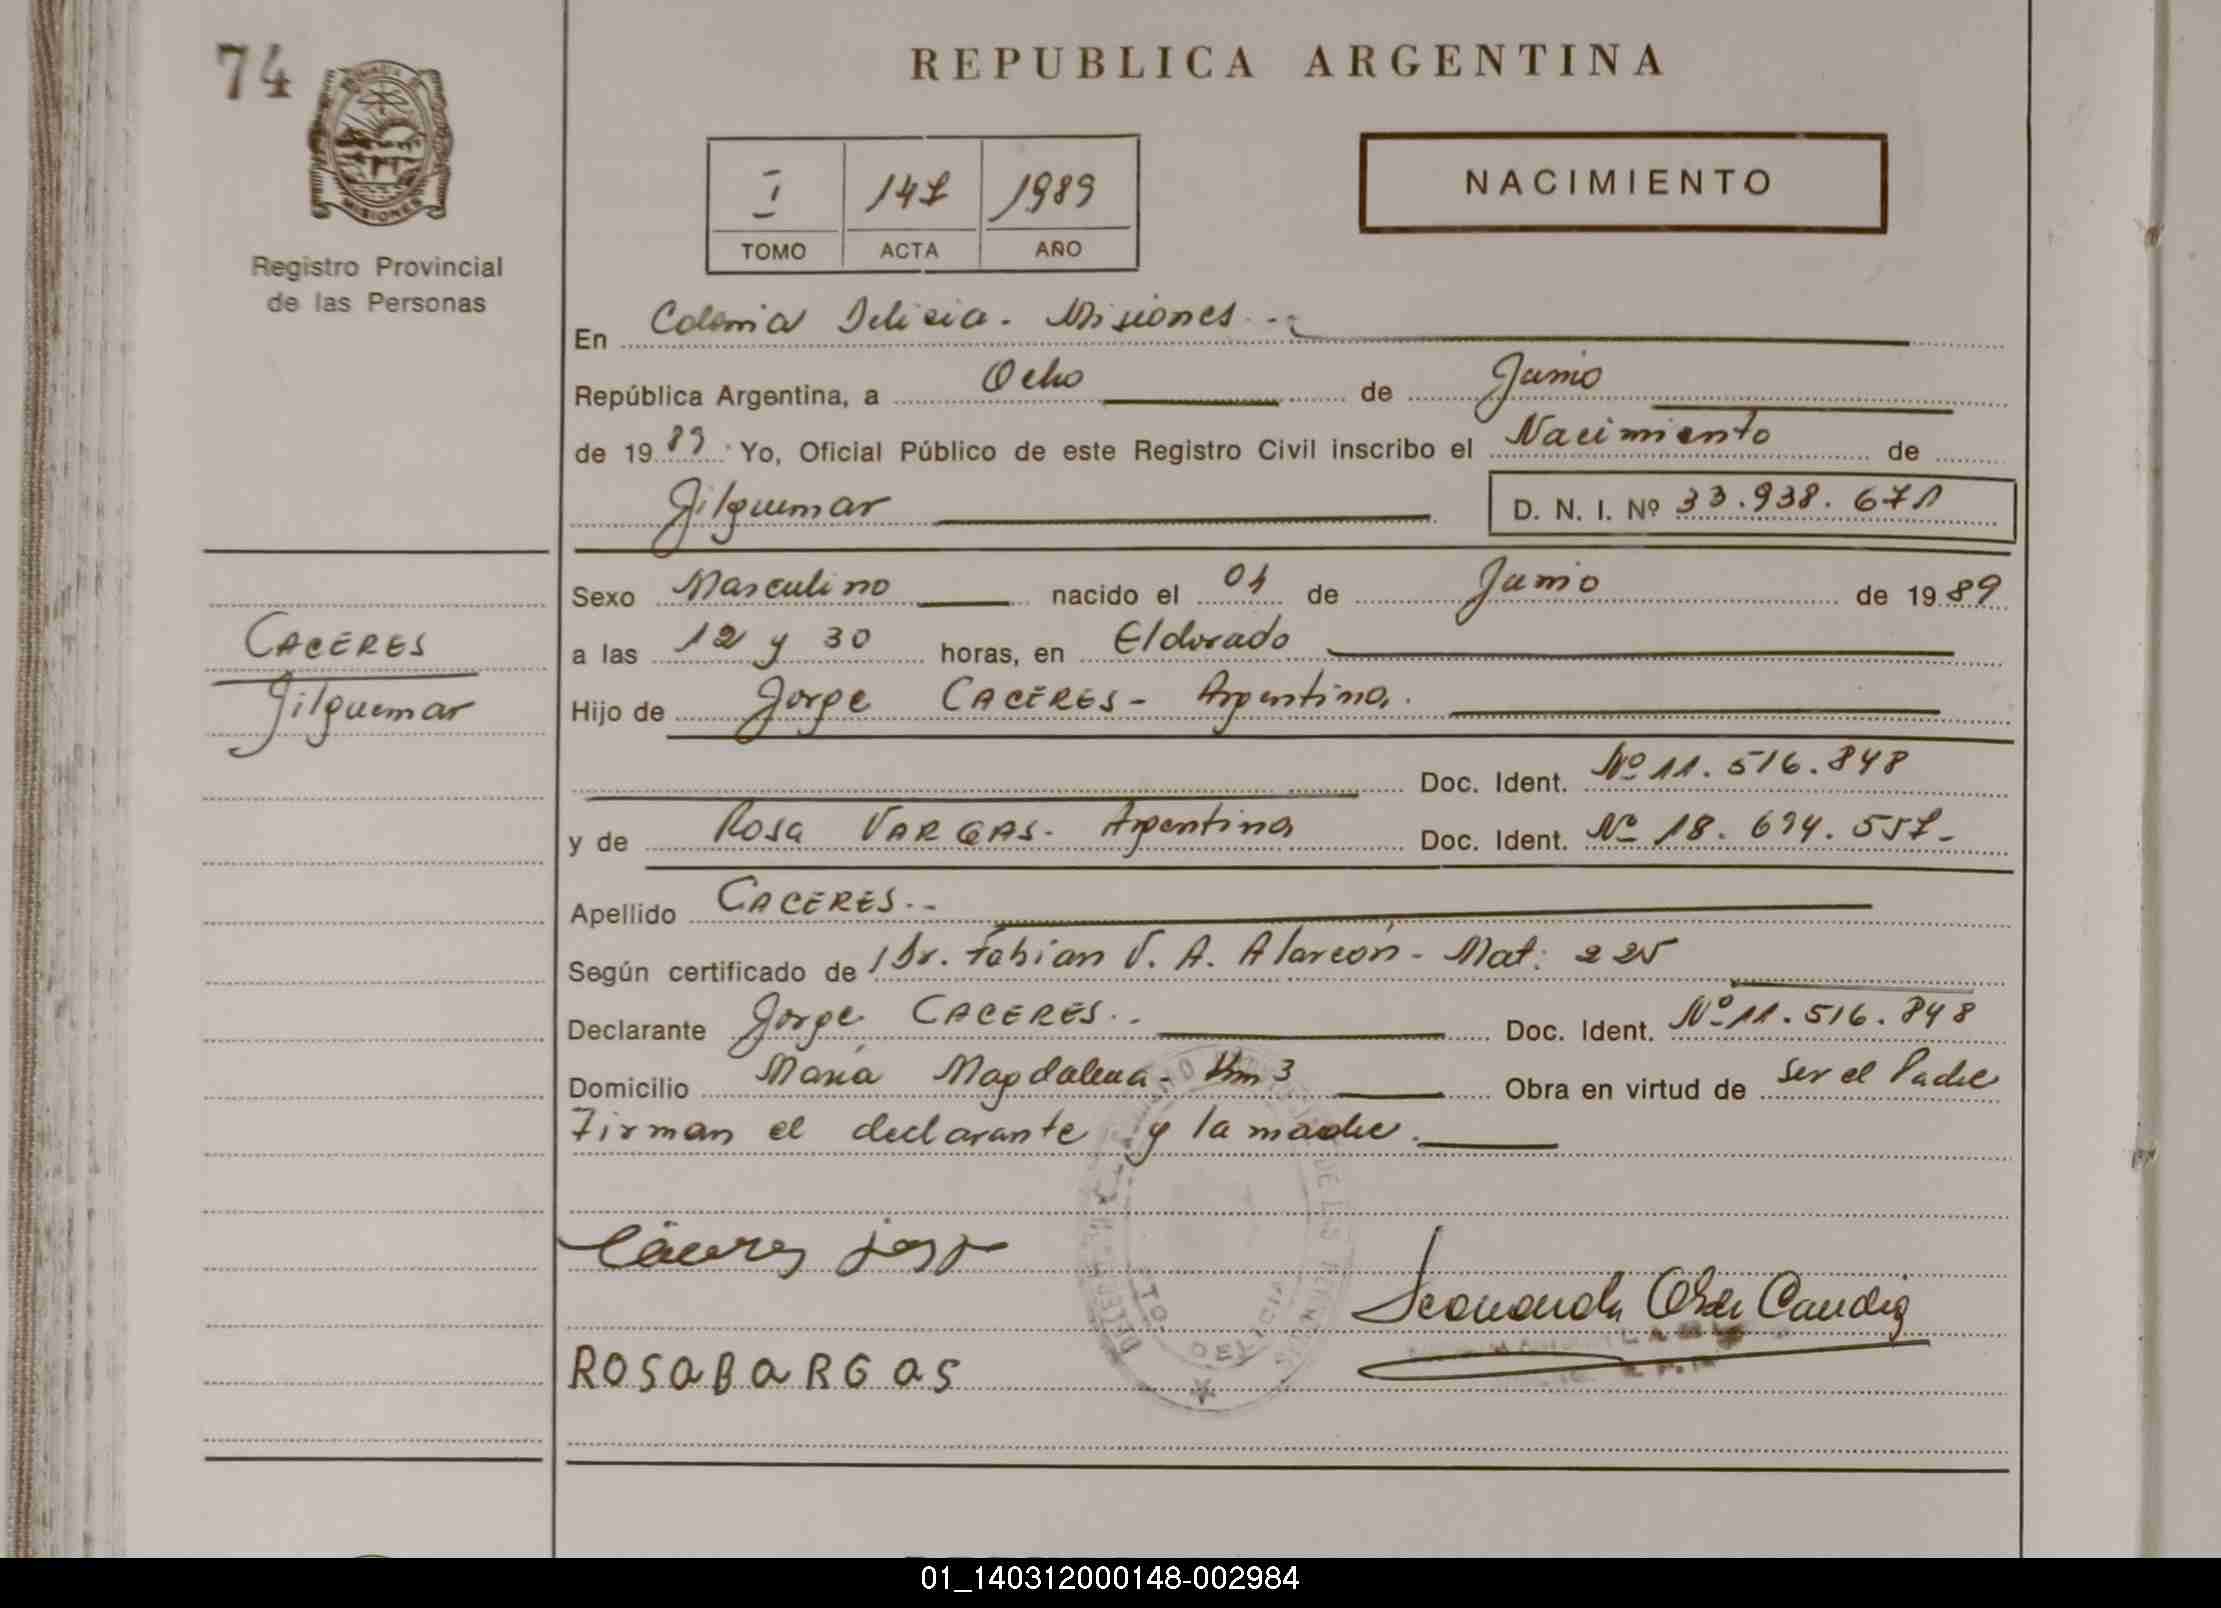 74
REPUBLICA ARGENTINA
MISIONES
Registro Provincial
de las Personas
I 147 1989
TOMO ACTA AÑO
NACIMIENTO
En Colonia Delicia - Misiones
República Argentina, a Ocho de Junio
de 1989 Yo, Oficial Público de este Registro Civil inscribo el Nacimiento de
Jilguemar D. N. I. Nº 33.938.671
Sexo Masculino nacido el 04 de Junio de 1989
a las 12 y 30 horas, en Eldorado
CACERES
Jilguemar
Hijo de Jorge CACERES - Argentina.
Doc. Ident. Nº 11.516.848
y de Rosa VARGAS - Argentina Doc. Ident. Nº 18.694.557-
Apellido CACERES.-
Según certificado de Dr. Fabian V. A. Alarcón - Mat: 225
Declarante Jorge CACERES.. Doc. Ident. Nº 11.516.848
Domicilio María Magdalena - Km 3 Obra en virtud de Ser el Padre
Firman el declarante y la madre.
Cáceres jorge
ROSA BARGAS
DE LAS
DELICIA
01_140312000148-002984